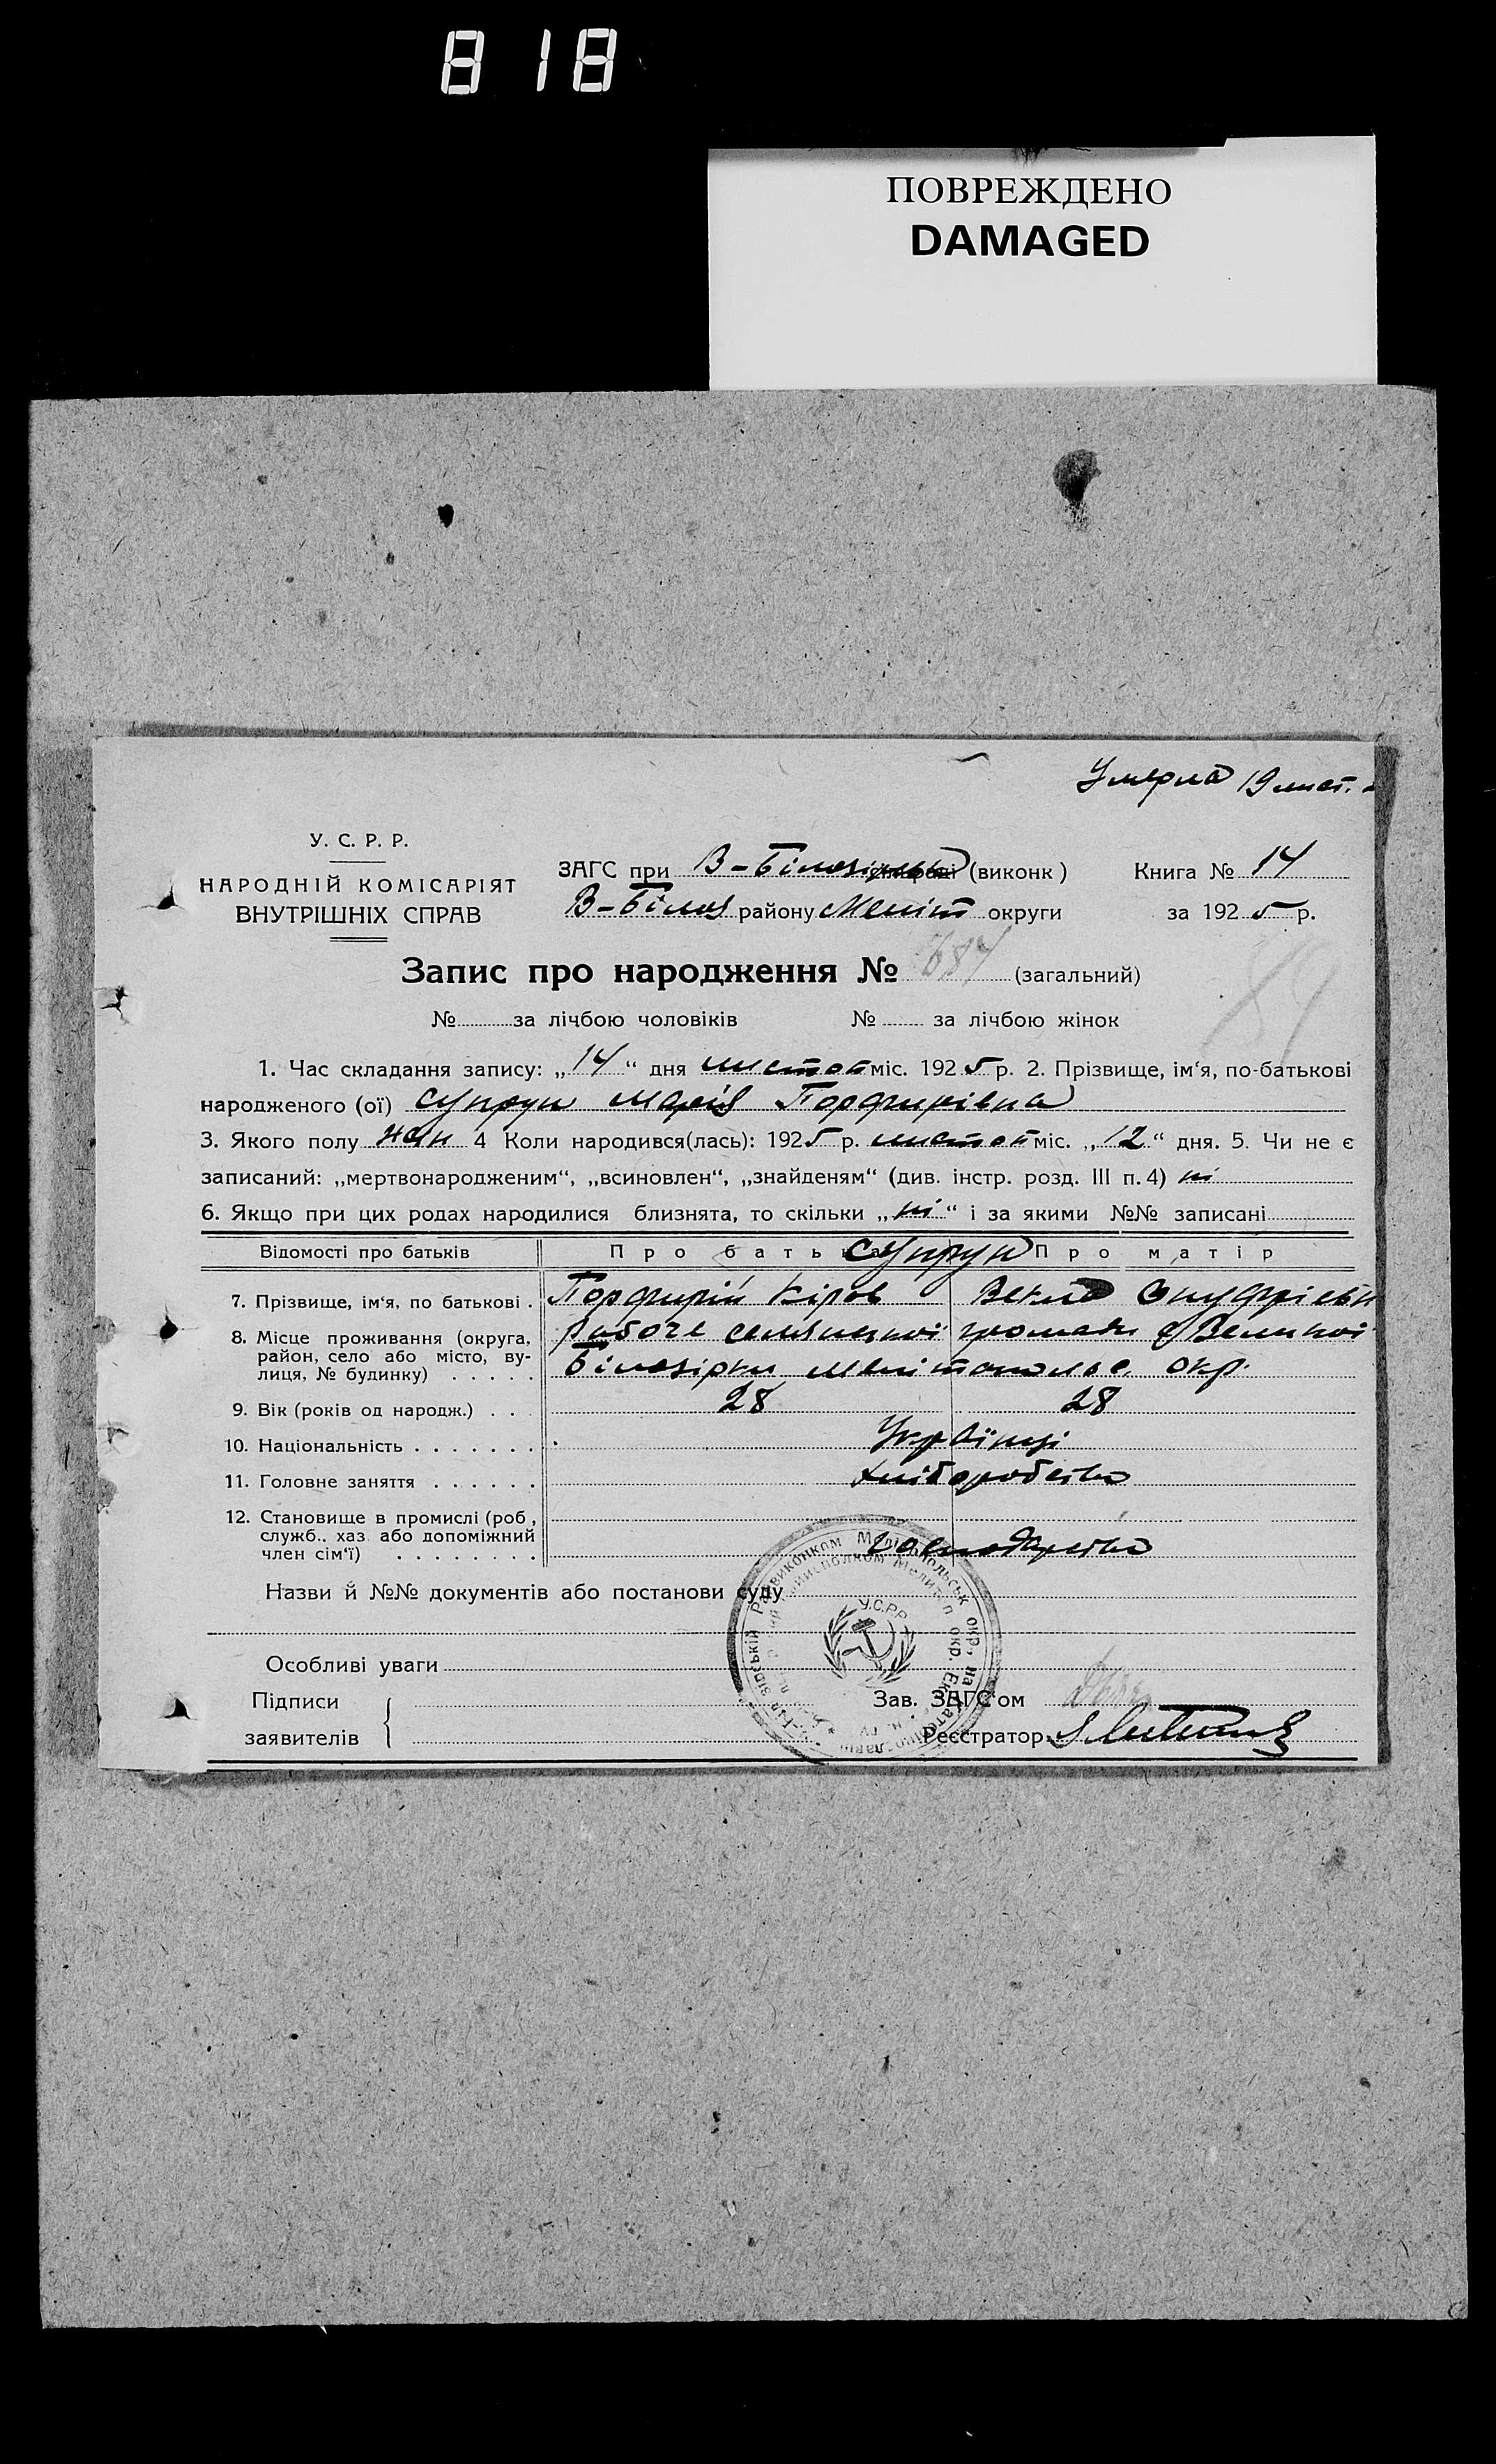 818
ПОВРЕЖДЕНО
DAMAGED
Умерла 19 лист.
У. С. Р. Р.
НАРОДНІЙ КОМІСАРІЯТ
ВНУТРІШНІХ СПРАВ
ЗАГС при В-Білозірськ (виконк)
Книга № 14
В-Білоз району Меліт округи
за 1925 р.
Запис про народження № 687 (загальний)
84
№ за лічбою чоловіків № за лічбою жінок
1. Час складання запису: „14“ дня листоп міс. 1925 р. 2. Прізвище, ім‘я, по-батькові
народженого (ої) Супрун Марія Порфирівна
3. Якого полу жін 4 Коли народився(лась): 1925 р. листоп міс. „12“ дня. 5. Чи не є
записаний: „мертвонародженим“, „всиновлен“, „знайденям“ (див. інстр. розд. III п. 4) ні
6. Якщо при цих родах народилися близнята, то скільки „ні“ і за якими №№ записані
Відомості про батьків Про батька Супрун Про матір
7. Прізвище, ім‘я, по батькові . Порфирій Кіров Векла Онуфріевн
8. Місце проживання (округа, район, село або місто, вулиця, № будинку) . . . . . робоче селянської громади с Великої
Білозірки мелітопольс. окр.
9. Вік (років од народж.) . . . 28 28
10. Національність . . . . . . . Українці
11. Головне заняття . . . . . . хліборобство
12. Становище в промислі (роб,
служб., хаз або допоміжний
член сім‘ї) . . . . . . . .
Назви й №№ документів або постанови суду
У.С.Р.Р.
Особливі уваги
Підписи
заявителів
Зав. ЗАГС‘ом
Реєстратор